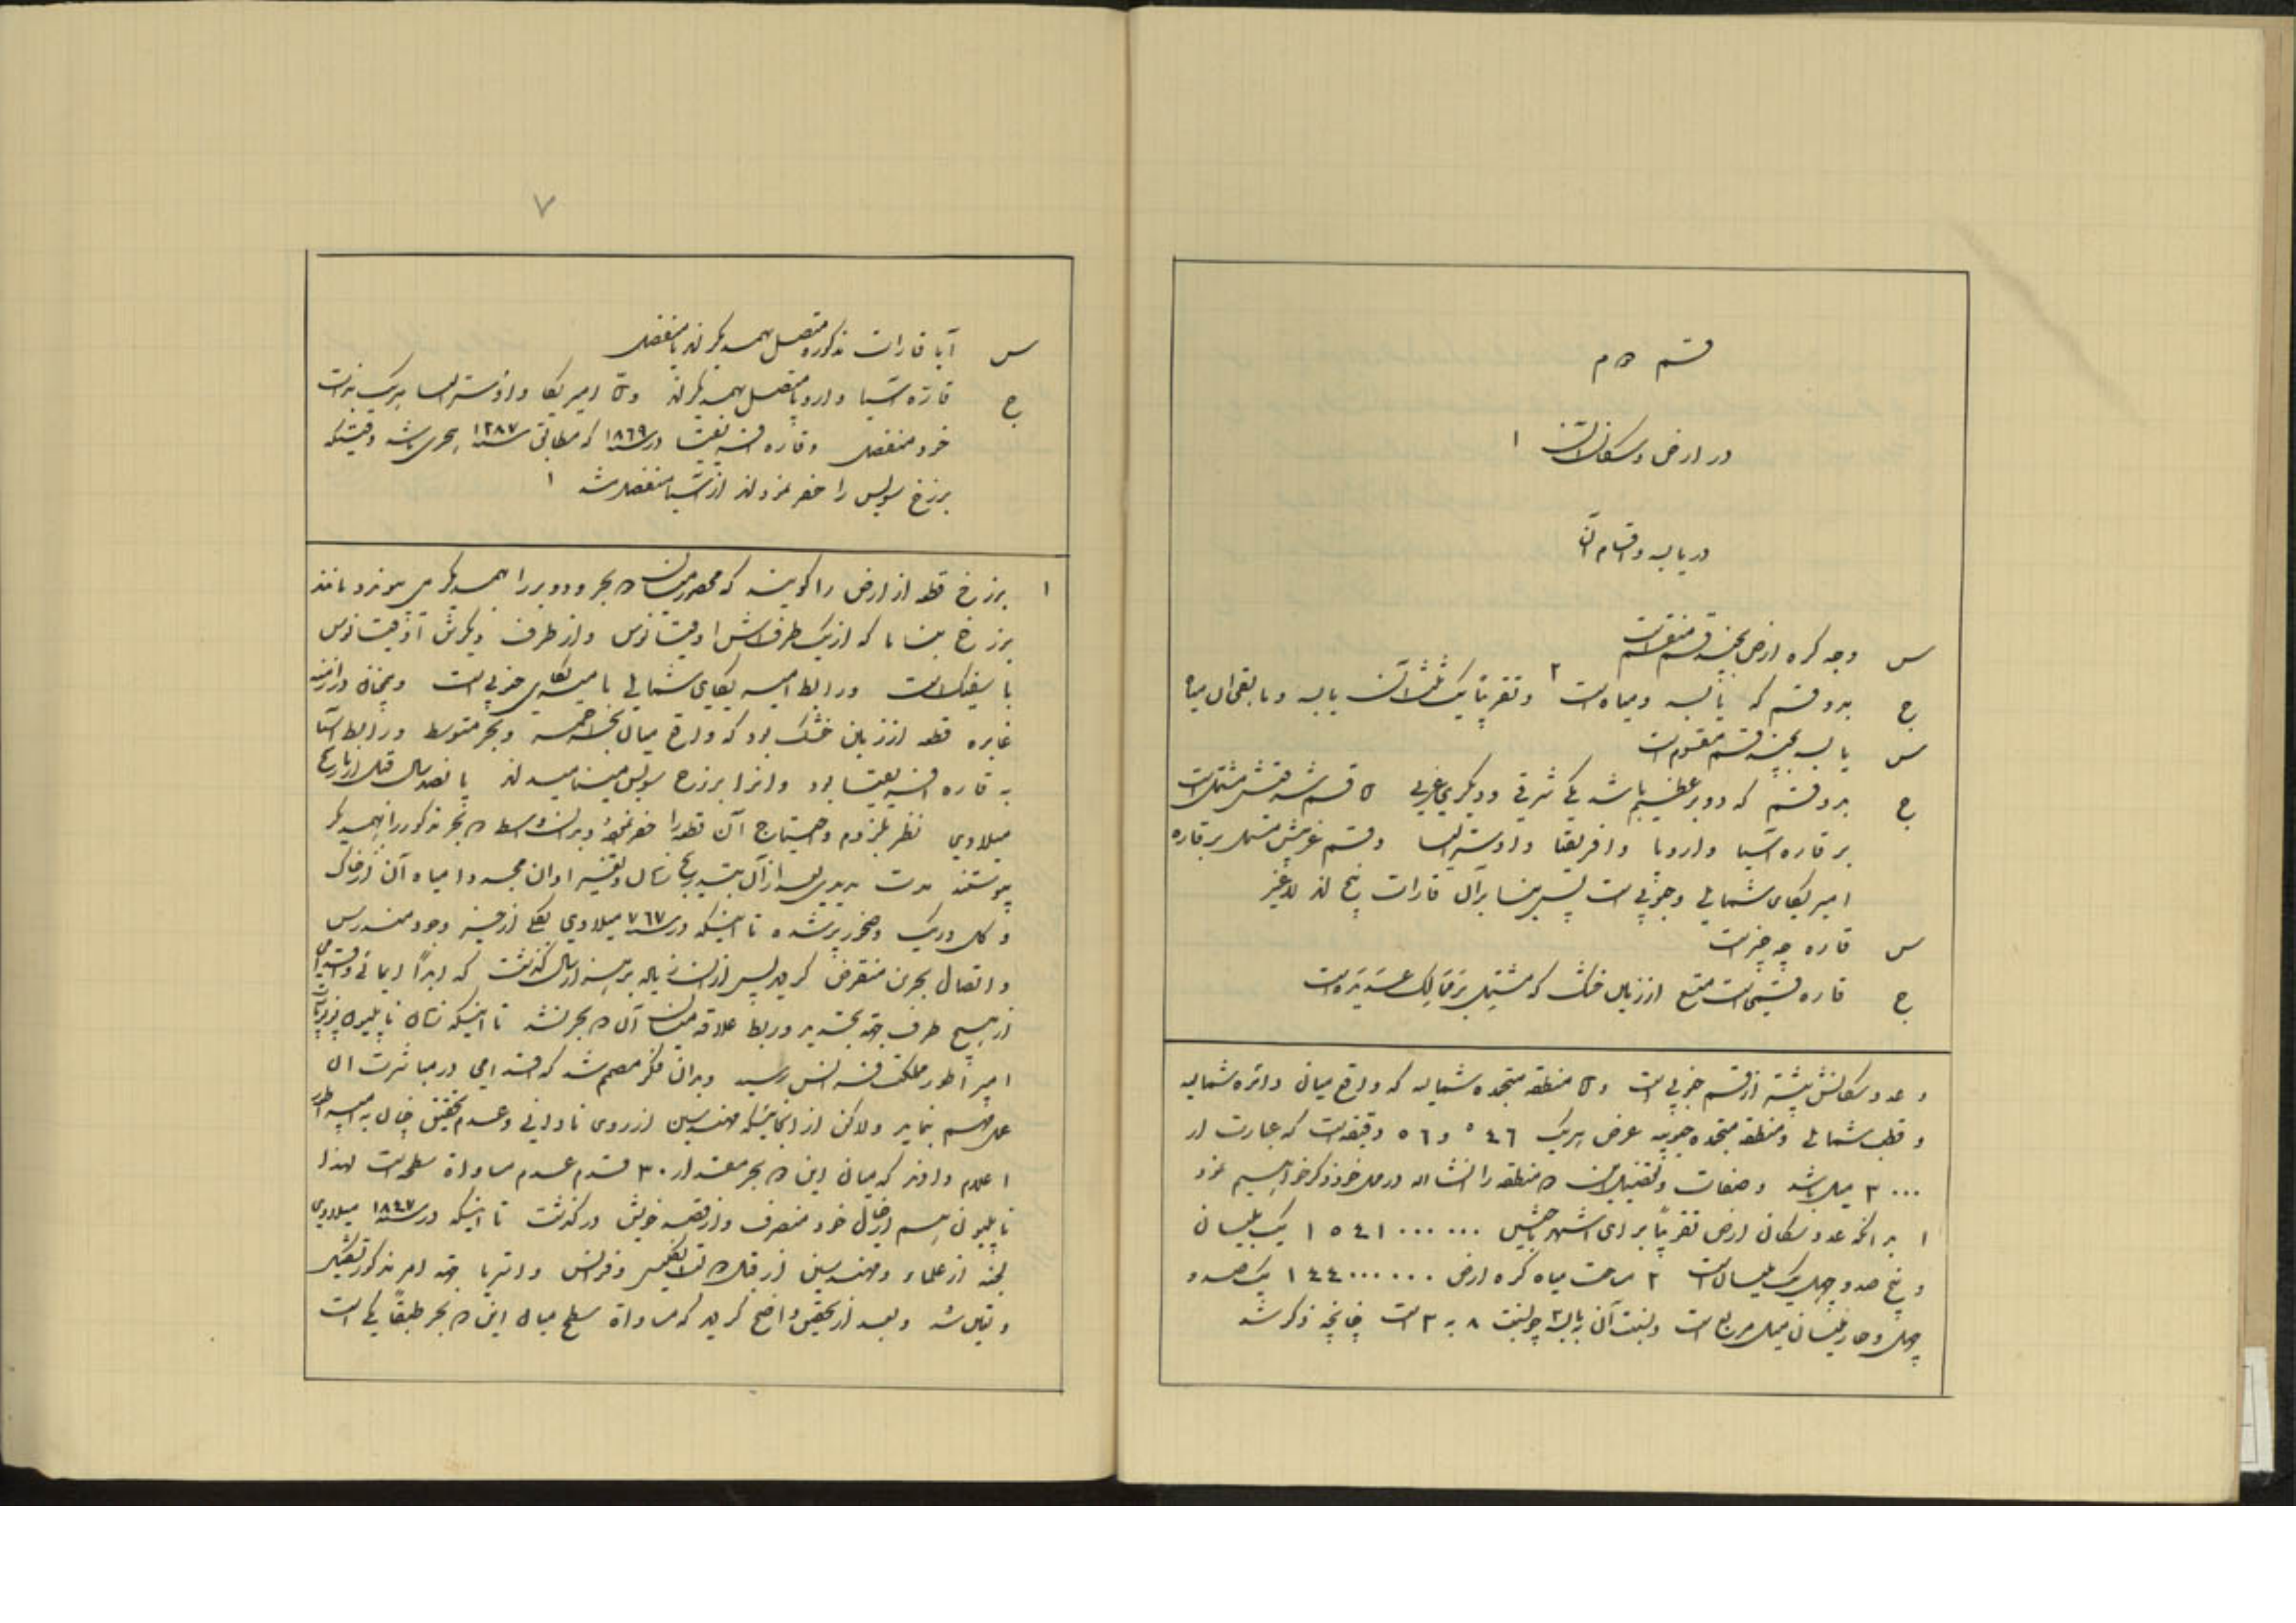 قسم دوم
در ارض و سکان آن ۱
در یابسه و اقسام آن
س وجه کره ارض بچند قسم منقسم است
ج بدو قسم که یابسه و میاه است ۲ و تقریباً یک ثلث آن یابسه و مابقی آن میاه
س یابسه بچند قسم مقسوم است
ج بدو قسم که دو بر عظیم باشد یکی شرقی و دیگری غربی قسم شرقیش مشتمل است
بر قاره آسیا و اروپا و افریقا و اوسترالیا و قسم غربیش مشتمل بر قاره
امیریکای شمالی و جنوبی است پس بنا بر آن قارات پنج اند لاغیر
س قاره چه چیز است
ج قاره قسمی است متسع از زمین خشک که مشتمل بر ممالک عدیده است
و عدد سکانش بیشتر از قسم جنوبی است و منطقه متجمده شمالیه که واقع میان دائره شمالیه
و قطب شمالی و منطقه متجمده جنوبیه عرض هریک ٤٦ ° و ٥٦ دقیقه است که عبارت از
۳۰۰۰ میل باشد و صفات و تفصیل این دو منطقه را انشاء الله در محل خود ذکر خواهیم نمود
۱ بدانکه عدد سکان ارض تقریباً برای اشهر باحثین ۱٥٤۱۰۰۰۰۰۰ یک بلیان
و پنج صد و چهل یک ملیان است ۲ مساحت میاه کره ارض ۱٤٤۰۰۰۰۰۰ یک صد و
چهل و چار ملیان میل مربع است و نسبت آن به یابسه چو نسبت ۸ به ۳ است چنانچه ذکر شد
۷
س آیا قارات مذکوره متصل بهمدیگرند یا منفصل
ج قاره آسیا و اروپا متصل بهمدیگرند و امیریکا و اوسترالیا هریک بذات
خود منفصل و قاره افریقیا در سنه ۱۸٦۹ که مطابق سنه ۱۲۸۷ هجری باشد وقتیکه
برزخ سویس را حفر نمودند از آسیا منفصل شد ۱
۱ برزخ قطعه از ارض را گویند که محصور میان دو بحر و دو بر را بهمدیگر می پیوندد مانند
برزخ بناما که از یک طرفش اوقیانوس و از طرف دیگرش اوقیانوس
پاسیفیک است و رابط امیریکای شمالی با امیریکای جنوبی است و همچنان در ازمنه
غابره قطعه از زمین خشک بود که واقع میان بحر احمر و بحر متوسط و رابط آسیا
به قاره افریقیا بود و انرا برزخ سویس مینامیدند پانصد سال قبل از تاریخ
میلادی نظر بلزوم و احتیاج آن قطعه را حفر نموده و بدان واسطه دو بحر مذکور را بهمدیگر
پیوستند مدت مدیدی بعد از آن بتدریج زمان و تغییر اوان مجددا میاه آن از خاک
و گل و ریگ و صخور پر شده تا اینکه در سنه ۷٦۷ میلادی بکلی از حیز وجود مندرس
و اتصال بحرین منقرض گردید پس از آن زیاده بر هزار سال گذشت که ابداً ایمائی و اقدامی
از هیچ طرف بجهة تجدید و ربط علاقه میان آن دو بحر نشد تا اینکه زمان ناپلیون بوناپارت
امپراطور مملکت فرانس رسید و بدان فکر مصمم شد که اقدامی در مباشرت آن
عمل مهم بنماید ولاکن از انجائیکه مهندسین از روی نادانی و عدم تحقیق چنان به امپراطور
اعلام دادند که میان این دو بحر مقدار ۳۰ قدم عدم مساواة سطح است لهذا
ناپلیون هم از خیال خود منصرف و از قصد خویش درگذشت تا اینکه در سنه ۱۸٤۷ میلادی
لجنه از علماء و مهندسین از قبل دول انگلیس و فرانس و اتریا بجهة امر مذکور تشکیل
و تعیین شد و بعد از تحقیق واضح گردید که مساواة سطح میان این دو بحر طبقاً یکی است